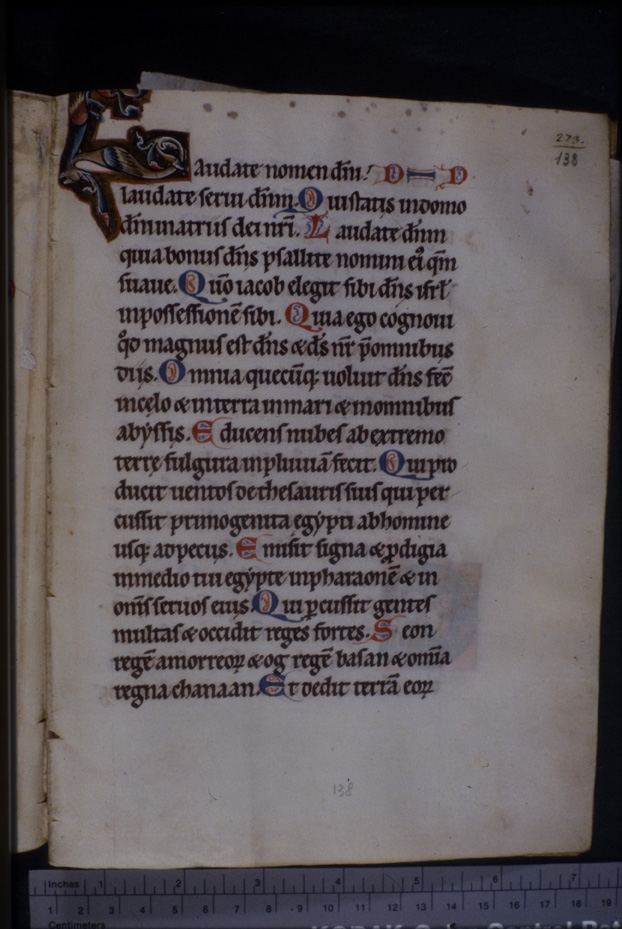 273.
138
Laudate nomen dñi.
laudate serui dñm. Qui statis in domo
dñi in atriis dei nr̃i. Laudate dñm
quia bonus dñs psallite nomini ei' qm̃
suaue. Qm̃o iacob elegit sibi dñs isrl̃
in possessionẽ sibi. Quia ego cognoui
qd̃ magnus est dñs & ds̃ nr̃ p̃ omnibus
diis. Omnia quecũq; uoluit dñs fec̃
in celo & in terra in mari & in omnibus
abyssis. Educens nubes ab extremo
terrę fulgura in pluuiã fecit. Qui pro
ducit uentos de thesauris suis qui per
cussit primogenita egypti ab homine
usq; ad pecus. Emisit signa & prodigia
in medio tui egypte in pharaonẽ & in
om̃s seruos eius. Qui p̃cussit gentes
multas & occidit reges fortes. Seon
regẽ amorreoꝝ & og regẽ basan & om̃ia
regna chanaan. Et dedit terrã eoꝝ
138
Inches 1 2 3 4 5 6 7
1 2 3 4 5 6 7 8 9 10 11 12 13 14 15 16 17 18 19
Centimetres